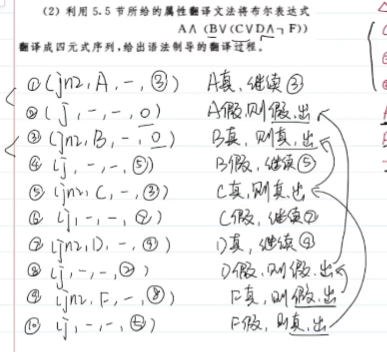 (2) 利用 5.5 节所给的属性翻译文法将布尔表达式
A∧ (B∨(C∨D∧¬ F))
翻译成四元式序列,给出语法制导的翻译过程。
① (jnz, A, -, ③) A真, 继续③
② (j, -, -, 0) A假, 则假.出
③ (jnz, B, -, 0) B真, 则真.出
④ (j, -, -, ⑤) B假, 继续⑤
⑤ (jnz, C, -, ③) C真, 则真.出
⑥ (j, -, -, ⑦) C假, 继续⑦
⑦ (jnz, D, -, ⑨) D真, 继续⑨
⑧ (j, -, -, ②) D假, 则假.出
⑨ (jnz, F, -, ⑧) F真, 则假.出
⑩ (j, -, -, ⑤) F假, 则真.出